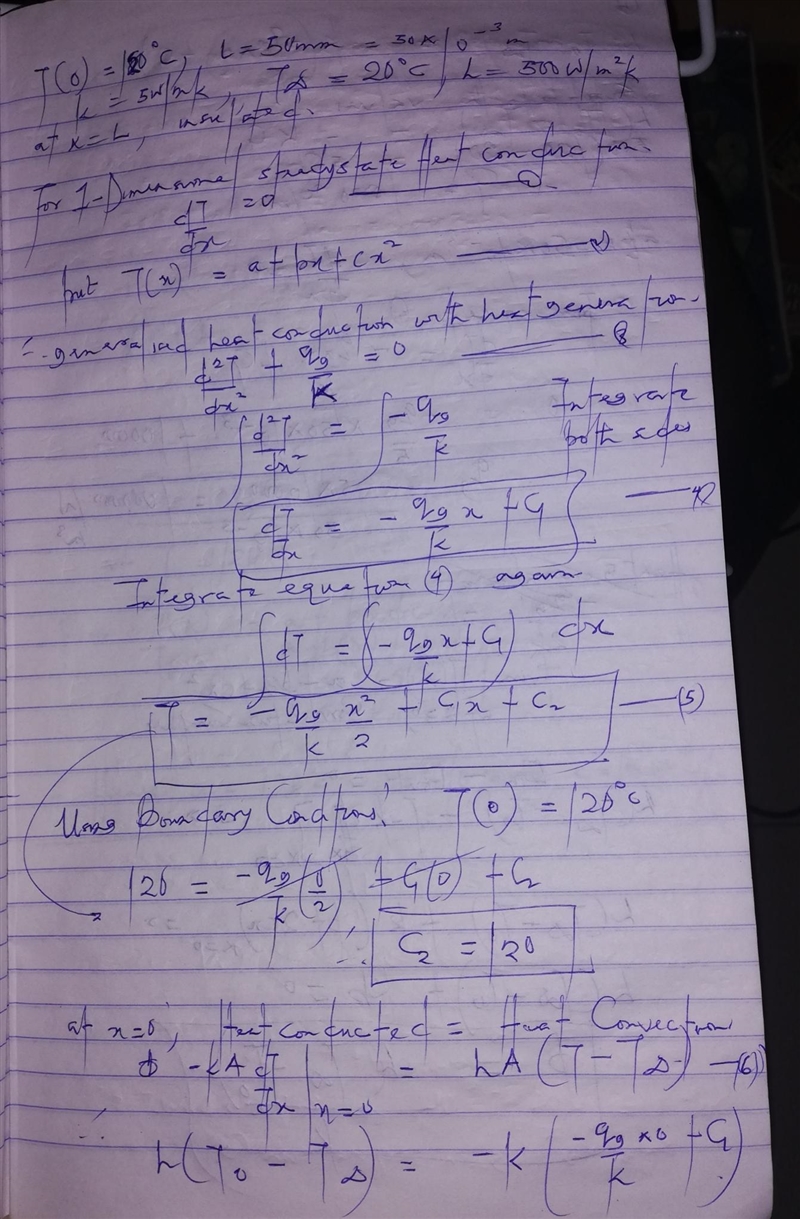 T(0) = 120°C, L = 50mm = 50x10⁻³ m
k = 5W/mk, T∞ = 20°C, h = 500W/m²k
at x = L, insulated.
For 1-Dimensional steady state Heat conduction.
dT/dx = 0
but T(x) = a + bx + cx²
∴ generalized heat conduction with heat generation.
d²T/dx² + qg/k = 0
∫ d²T/dx² = ∫ -qg/k Integrate both sides
dT/dx = -qg/k x + C₁ — (4)
Integrate equation (4) again
∫dT = ∫(-qg/k x + C₁) dx
T = -qg/k x²/2 + C₁x + C₂ — (5)
Using Boundary Conditions: T(0) = 120°C
120 = -qg/k (0/2) + C₁(0) + C₂
∴ C₂ = 120
at x=0, Heat conducted = Heat Convection
-kA dT/dx |x=0 = hA (T - T∞) — (6)
∴ h(T₀ - T∞) = -k (-qg x0/k + C₁)